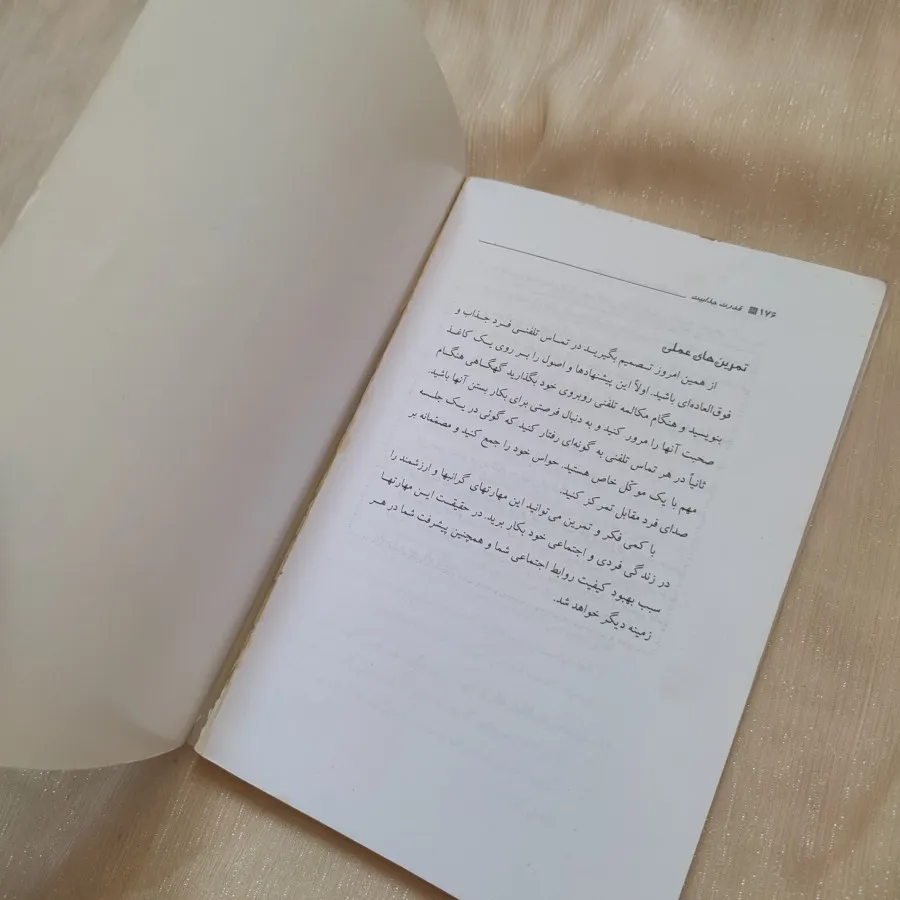 ۱۷۶ ■ قدرت جذابیت
تمرین‌های عملی
از همین امروز تصمیم بگیرید در تماس تلفنی فرد جذاب و
فوق‌العاده‌ای باشید. اولاً این پیشنهادها و اصول را بر روی یک کاغذ
بنویسید و هنگام مکالمه تلفنی روبروی خود بگذارید گهگاهی هنگام
صحبت آنها را مرور کنید و به دنبال فرصتی برای بکار بستن آنها باشید.
ثانیاً در هر تماس تلفنی به گونه‌ای رفتار کنید که گوئی در یک جلسه
مهم با یک موکّل خاص هستید. حواس خود را جمع کنید و مصممانه بر
صدای فرد مقابل تمرکز کنید.
با کمی فکر و تمرین می‌توانید این مهارتهای گرانبها و ارزشمند را
در زندگی فردی و اجتماعی خود بکار برید. در حقیقت این مهارتها
سبب بهبود کیفیت روابط اجتماعی شما و همچنین پیشرفت شما در هر
زمینه دیگر خواهد شد.